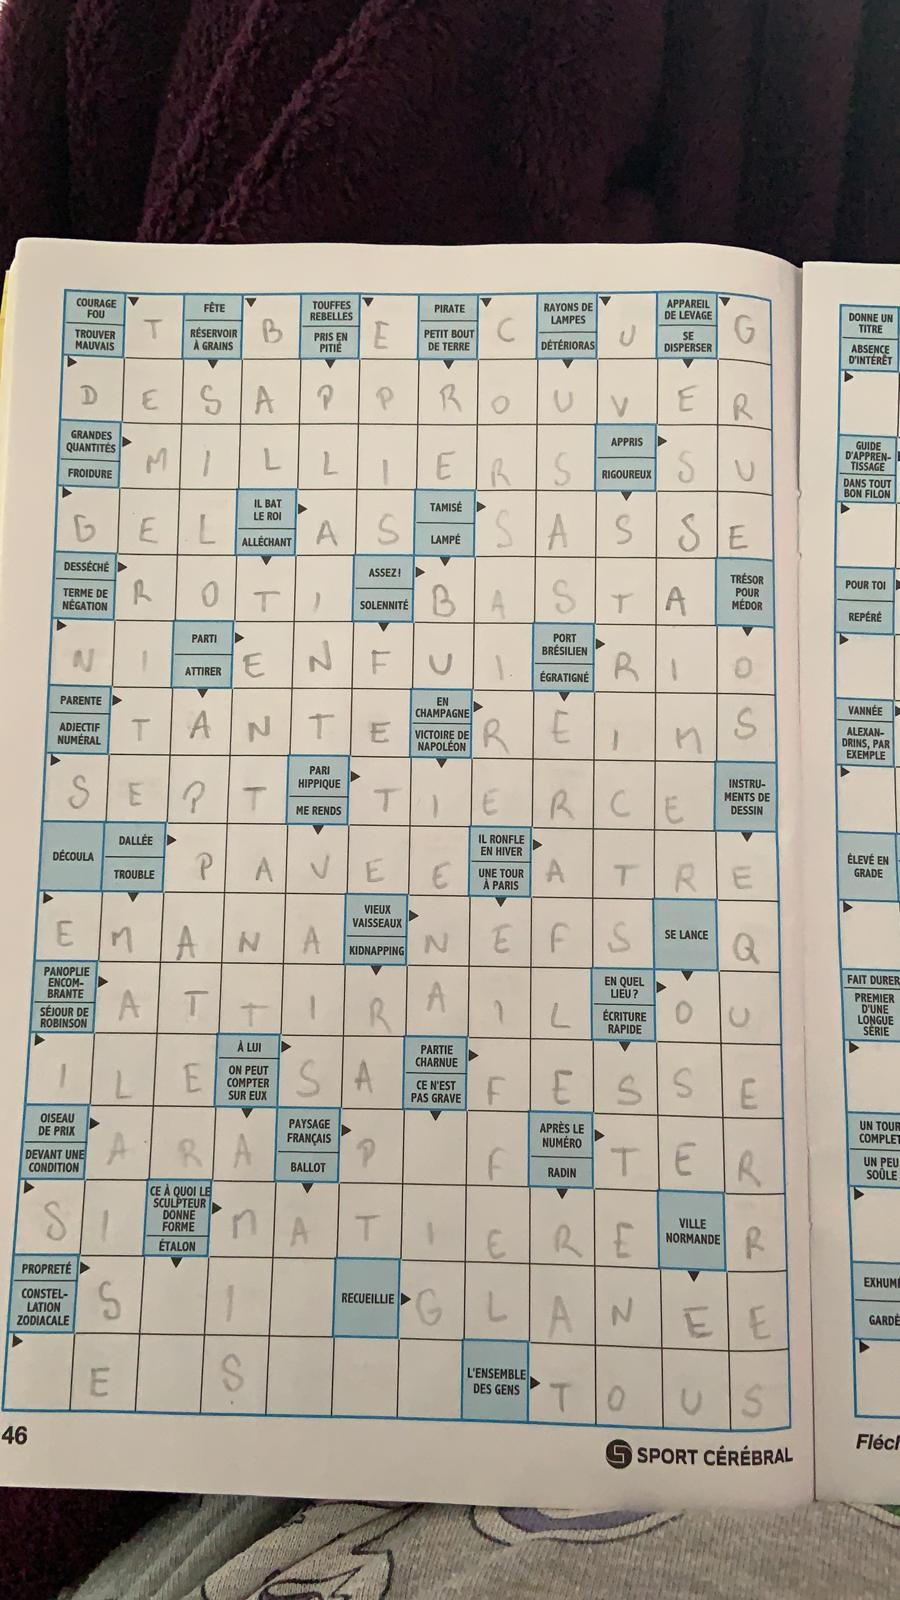 COURAGE FOU
TROUVER MAUVAIS
T
FÊTE
RÉSERVOIR À GRAINS
B
TOUFFES REBELLES
PRIS EN PITIÉ
E
PIRATE
PETIT BOUT DE TERRE
C
RAYONS DE LAMPES
DÉTÉRIORAS
U
APPAREIL DE LEVAGE
SE DISPERSER
G
D E S A P P R O U V E R
GRANDES QUANTITÉS
FROIDURE
M I L L I E R S
APPRIS
RIGOUREUX
S U
G E L
IL BAT LE ROI
ALLÉCHANT
A S
TAMISÉ
LAMPÉ
S A S S E
DESSÉCHÉ
TERME DE NÉGATION
R O T I
ASSEZ !
SOLENNITÉ
B A S T A
TRÉSOR POUR MÉDOR
N I
PARTI
ATTIRER
E N F U I
PORT BRÉSILIEN
ÉGRATIGNÉ
R I O
PARENTE
ADJECTIF NUMÉRAL
T A N T E
EN CHAMPAGNE
VICTOIRE DE NAPOLÉON
R E I M S
S E P T
PARI HIPPIQUE
ME RENDS
T I E R C E
INSTRU-
MENTS DE DESSIN
DÉCOULA
DALLÉE
TROUBLE
P A V E E
IL RONFLE EN HIVER
UNE TOUR À PARIS
A T R E
E M A N A
VIEUX VAISSEAUX
KIDNAPPING
N E F S
SE LANCE
Q
PANOPLIE ENCOM-
BRANTE
SÉJOUR DE ROBINSON
A T T I R A I L
EN QUEL LIEU ?
ÉCRITURE RAPIDE
O U
I L E
À LUI
ON PEUT COMPTER SUR EUX
S A
PARTIE CHARNUE
CE N'EST PAS GRAVE
F E S S E
OISEAU DE PRIX
DEVANT UNE CONDITION
A R A
PAYSAGE FRANÇAIS
BALLOT
P F
APRÈS LE NUMÉRO
RADIN
T E R
S I
CE À QUOI LE SCULPTEUR DONNE FORME
ÉTALON
M A T I E R E
VILLE NORMANDE
R
PROPRETÉ
CONSTEL-
LATION ZODIACALE
S I
RECUEILLIE
G L A N E E
E S
L'ENSEMBLE DES GENS
T O U S
46
SPORT CÉRÉBRAL
DONNE UN TITRE
ABSENCE D'INTÉRÊT
GUIDE D'APPREN-
TISSAGE
DANS TOUT BON FILON
POUR TOI
REPÉRÉ
VANNÉE
ALEXAN-
DRINS, PAR EXEMPLE
ÉLEVÉ EN GRADE
FAIT DURER
PREMIER D'UNE LONGUE SÉRIE
UN TOUR
UN PEU